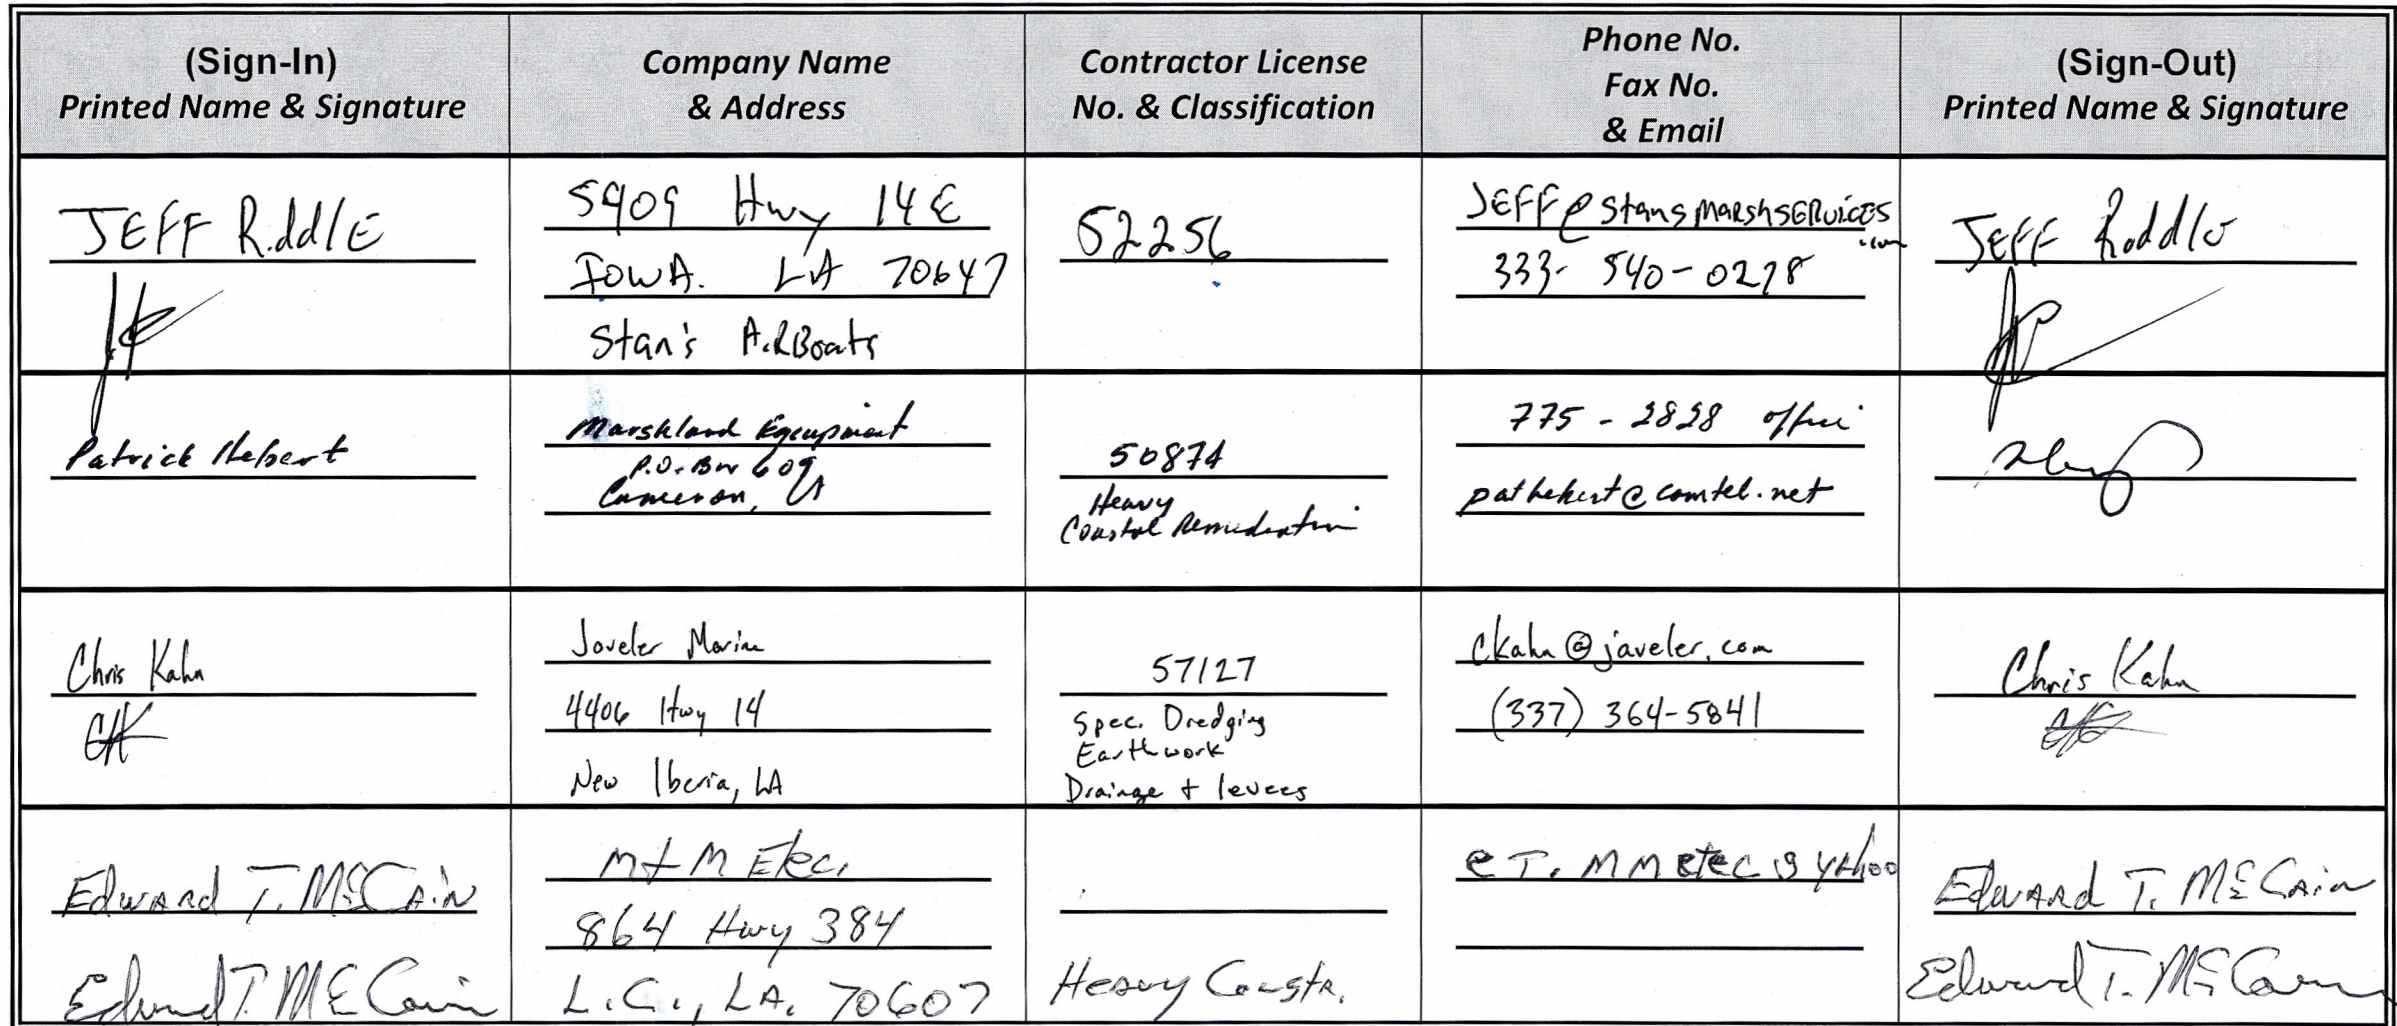 (Sign-In)
Printed Name & Signature
Company Name
& Address
Contractor License
No. & Classification
Phone No.
Fax No.
& Email
(Sign-Out)
Printed Name & Signature
JEFF RiddlE
5909 Hwy 14 E
IowA. LA 70647
Stan's AiRBoats
52256
JEFF@StansMARShSERVICES
.com
333- 540-0278
JEFF Riddle
Patrick Hebert
Marshland Equipment
P.O. Box 609
Cameron, LA
50874
Heavy
Coastal Remediation
775-2828 office
pathebert@camtel.net
Chris Kahn
CK
Javeler Marine
4406 Hwy 14
New Iberia, LA
57127
Spec. Dredging
Earthwork
Drainage + levees
ckahn@javeler.com
(337) 364-5841
Chris Kahn
Edward T. McCain
Edward T. McCain
M+M Elec.
864 Hwy 384
L.C., LA. 70607
Heavy Constr.
e T. MM elec @ yahoo
Edward T. McCain
Edward T. McCain